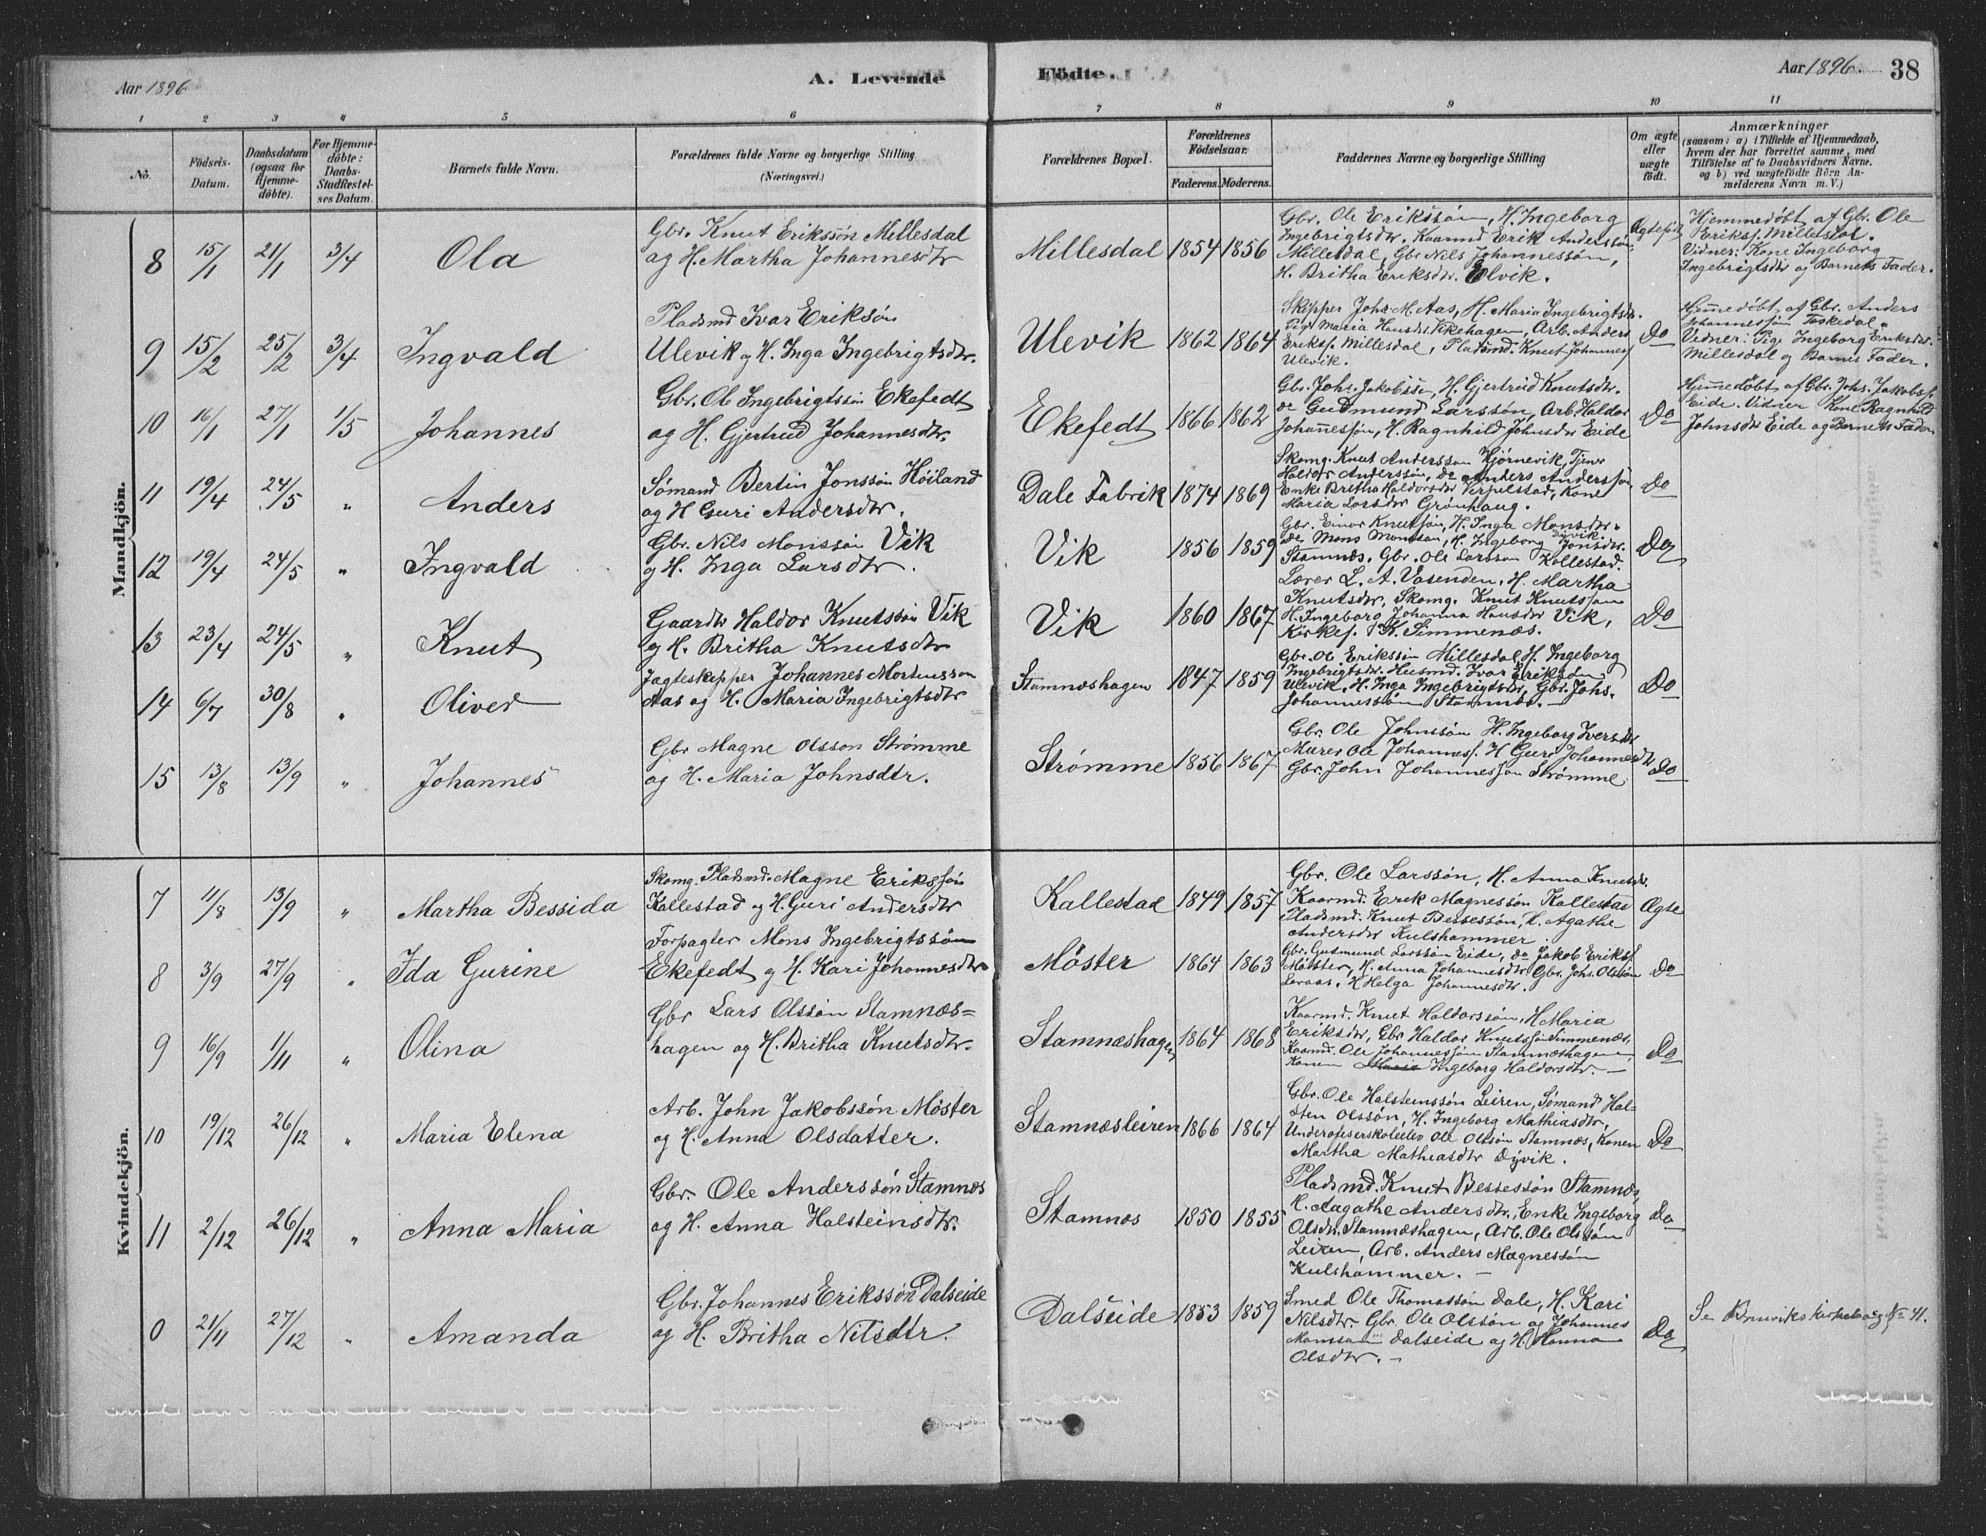 Aar 1896
A. Levende
Födte.
Aar 1896. 38
1 2 3 4 5 6 7 8 9 10 11
No.
Födsels-Datum.
Daabsdatum (ogsaa for Hjemme-döbte).
For Hjemme-döbte: Daabs-Stadfæstel-ses Datum.
Barnets fulde Navn.
Forældrenes fulde Navne og borgerlige Stilling
(Næringsvei.)
Forældrenes Bopæl.
Forældrenes Födselsaar.
Faderens. Moderens.
Faddernes Navne og borgerlige Stilling
Om ægte eller uægte födt.
Anmærkninger
(saasom: a) i Tilfælde af Hjemmedaab,
hvem der har forrettet samme, med
Tilföielse af to Daabsvidners Navne,
og b) ved uægtefödte Börn An-
melderens Navn m. V.)
Mandkjön.
8 15/1 21/1 3/4 Ola
Gbr. Knut Erikssøn Millesdal
og H. Martha Johannesdtr
Millesdal 1854 1856
Gbr. Ole Erikssøn, H. Ingeborg
Ingebrigtsdtr. Kaarmd Erik Anderssøn
Millesdal, Gbr Nils Johannessøn,
H. Britha Eriksdtr. Elvik.
Ægtefødt
Hjemmedøbt af Gbr. Ole
Eriks. Millesdal.
Vidner: Kone Ingeborg
Ingebrigtsdtr og Barnets Fader.
9 15/2 25/2 3/4 Ingvald
Pladsmd Ivar Eriksøn
Ulevik og H. Inga Ingebrigtsdtr.
Ulevik 1862 1864
Skipper Johs M. Aas, H. Maria Ingebrigtsdtr.
Pige Maria Hansdtr Vikehagen, Arb. Anders
Eriks. Millesdal, Pladsmd. Knut Johanness
Ulevik.
Do
Hjemmedøbt af Gbr. Anders
Johannessøn
Vidner: Pige Ingeborg Eriksdtr.
Millesdal og Barnets Fader.
10 16/1 27/1 1/5 Johannes
Gbr. Ole Ingebrigtssøn Ekefedt
og H. Gjertrud Johannesdtr.
Ekefedt 1866 1862
Gbr. Johs. Jakobssøn, H. Gjertrud Knutsdtr.
do Gudmund Larssøn, Arb. Haldor
Johannessøn, H. Ragnhild Johnsdtr Eide
Do
Hjemmedøbt af Gbr. Johs. Jakobss.
Eide. Vidner Kone Ragnhild
Johnsdtr Eide og Barnets Fader
11 19/4 24/5 " Anders
Sømand Bertin Jonssøn Høiland
og H Guri Andersdtr.
Dale Fabrik 1874 1869
Skomg. Knut Anderssøn Hjørnevik, Tjener
Haldor Anderssøn, do Anders Anderssøn,
Enke Britha Haldorsdtr Kone
Maria Larsdtr Grønhaug.
Do
12 19/4 24/5 " Ingvald
Gbr. Nils Monssøn Vik
og H. Inga Larsdtr.
Vik 1856 1859
Gbr. Einar Knutsøn, H. Inga Monsdtr.
do Mons Monsson, H. Ingeborg Jonsdtr. Dyvik.
Stamnæs. Gbr. Ole Larsson Kallestad.
Do
13 23/4 24/5 " Knut
Gaardbr Haldor Knutssøn Vik
og H. Britha Knutsdtr
Vik 1860 1867
Lærer L. A. Vasenden, H. Martha
Knutsdtr, Skomg. Knut Knutssøn
H. Ingeborg Johanna Hansdtr Vik,
Kirkes. K. Simmenæs.
Do
14 6/7 30/8 " Oliver
Jagteskipper Johannes Mortensson
Aas og H. Maria Ingebrigtsdtr
Stamnæshagen 1847 1859
Gbr. Ole Erikssøn Millesdal, H. Ingeborg
Ingebrigtsdtr. Husmd. Ivar Erikssøn
Ulevik, H. Inga Ingebrigtsdtr, Gbr. Johs.
Johannessøn Stamnæs.
Do
15 13/8 13/9 " Johannes
Gbr Magne Olsson Strømme
og H. Maria Johnsdtr.
Strømme 1856 1867
Gbr. Ole Johnssøn H. Ingeborg Iversdtr
Murer Ole Johannes. H Guri Johannesdtr
Gbr. John Johannessøn Strømme
Do
Kvindekjön.
7 11/8 13/9 " Martha Bessida
Skomg. Pladsmd. Magne Erikssøn
Kallestad og H. Guri Andersdtr
Kallestad 1849 1857
Gbr. Ole Larssøn, H. Anna Knutsdtr.
Kaarmd. Erik Magnessøn Kallestad
Pladsmd. Knut Bessessøn, H. Agathe
Andersdtr Kulshammer.
Ægte
8 3/9 27/9 " Ida Gurine
Forpagter Mons Ingebrigtssøn
Ekefedt og H. Kari Johannesdtr
Møster 1864 1863
Gbr. Gudmund Larssøn Eide, do Jakob Erikss.
Møster, H. Anna Johannesdtr Gbr. Johs. Olssøn
H Helga Johannesdtr.
Do
9 16/9 1/11 " Olina
Gbr Lars Olssøn Stamnæs=
hagen og H. Britha Knutsdtr.
Stamnæshagen 1864 1868
Kaarmd. Knut Haldorssøn, H Maria
Eriksdtr, Gbr Haldor Knutssøn Simmenæs,
Kaarmd. Ole Johannessøn Stamnæshagen,
Konen Maria Ingeborg Haldorsdtr. —
Do
10 19/12 26/12 " Maria Elena
Arb. John Jakobssøn Møster
og H. Anna Olsdatter.
Stamnæsleiren 1866 1864
Gbr. Ole Halsteinssøn Leiren, Sømand Hal-
sten Olssøn, H. Ingeborg Mathiasdtr,
Underofiserskoleelev Ole Olssøn Stamnæs, Konen
Martha Mathiasdtr Dyvik.
Do
11 2/12 26/12 " Anna Maria
Gbr. Ole Anderssøn Stamnæs
og H. Anna Halsteinsdtr.
Stamnæs 1850 1855
Pladsmd. Knut Bessessøn Stamnæs,
H. Aagathe Andersdtr, Enke Ingeborg
Olsdtr. Stamnæshagen, Arb. Ole Olssøn
Leiren, Arb. Anders Magnessøn
Kulshammer. —
Do
0 21/11 27/12 " Amanda
Gbr. Johannes Erikssøn Dalseide
og H. Britha Nilsdtr.
Dalseide 1853 1859
Smed Ole Thomassøn Dale, H. Kari
Nilsdtr. Gbr. Ole Olssøn og Johannes
Monssøn Dalseide og H. Hanna
Olsdtr. —
Do
Se Bruviks kirkebog No 41.